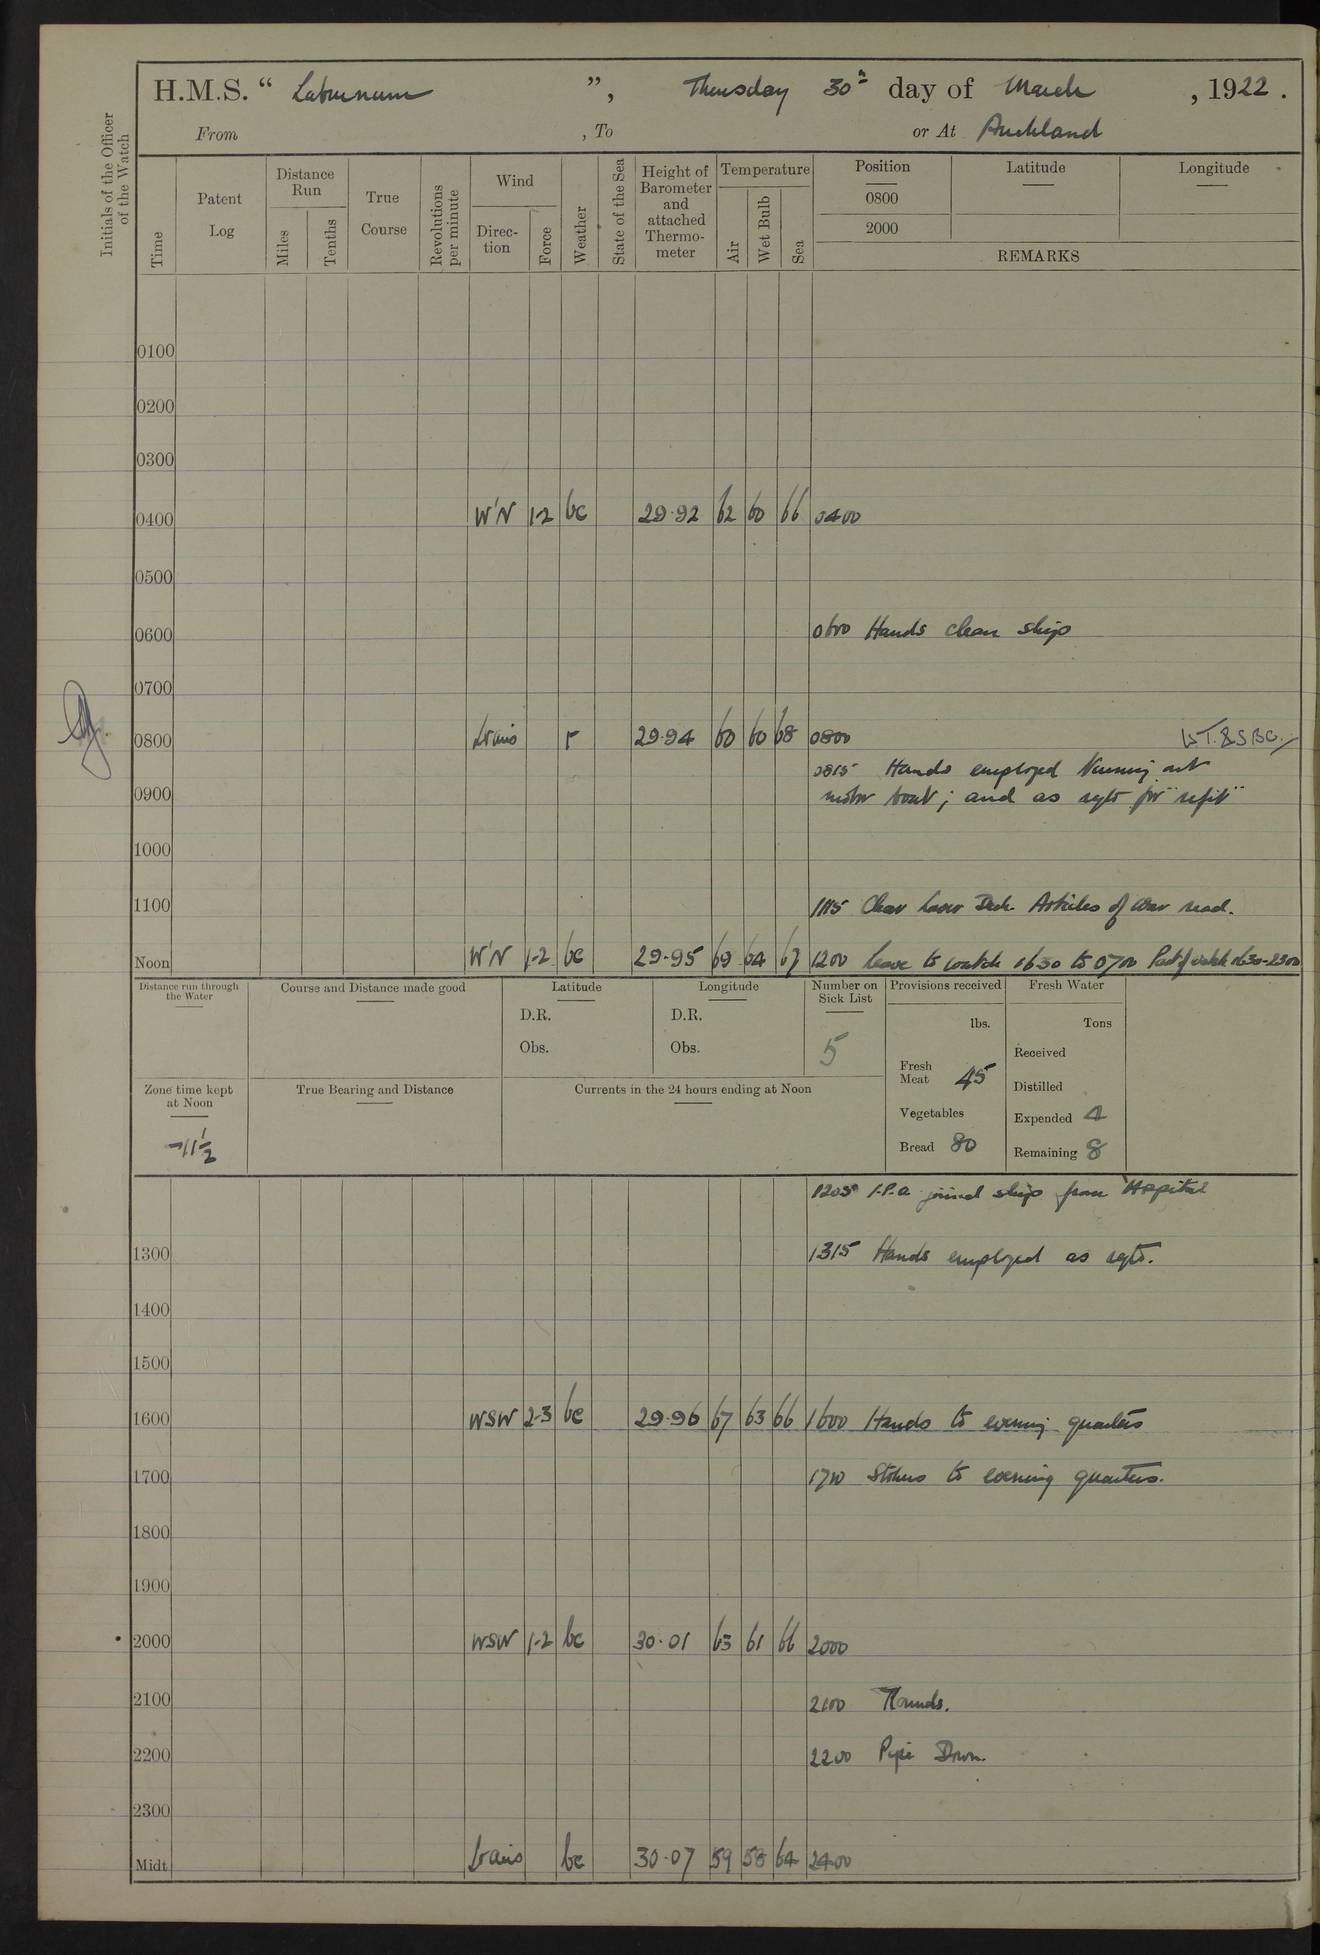 H.M.S. “ Laburnum ”, Thursday 30th day of March , 1922 .
From , To or At Auckland
Initials of the Officer of the Watch
Time
Patent Log
Distance Run
Miles
Tenths
True Course
Revolutions per minute
Wind
Direc-tion
Force
Weather
State of the Sea
Height of Barometer and attached Thermo-meter
Temperature
Air
Wet Bulb
Sea
Position Latitude Longitude
0800
2000
REMARKS
0100
0200
0300
0400 W'N 1-2 bc 29.92 62 60 66 0400
0500
0600 0600 Hands clean ship
0700
0800 r 29.94 60 60 68 0800
0815 Hands employed out
0900 motor boat; and as reqte for "refit"
1000
1100 1115 Clear lower Deck. Articles of War read.
Noon W'N 1-2 bc 29.95 69 64 67 1200 Leave to watch 1630 to 0700 Part of watch 1630-2300
Distance run through the Water
Course and Distance made good
Latitude
D.R.
Obs.
Longitude
D.R.
Obs.
Number on Sick List
5
Provisions received
lbs.
Fresh Meat 45
Vegetables
Bread 80
Fresh Water
Tons
Received
Distilled
Expended 4
Remaining 8
Zone time kept at Noon
-11½
True Bearing and Distance
Currents in the 24 hours ending at Noon
1205 joined ship from Hospital
1300 1315 Hands employed as reqte.
1400
1500
1600 WSW 2-3 bc 29.96 67 63 66 1600 Hands to evening quarters
1700 1710 Stokers to evening quarters.
1800
1900
2000 WSW 1-2 bc 30.01 63 61 66 2000
2100 2100 Rounds.
2200 2200 Pipe Down.
2300
Midt bc 30.07 59 58 64 2400